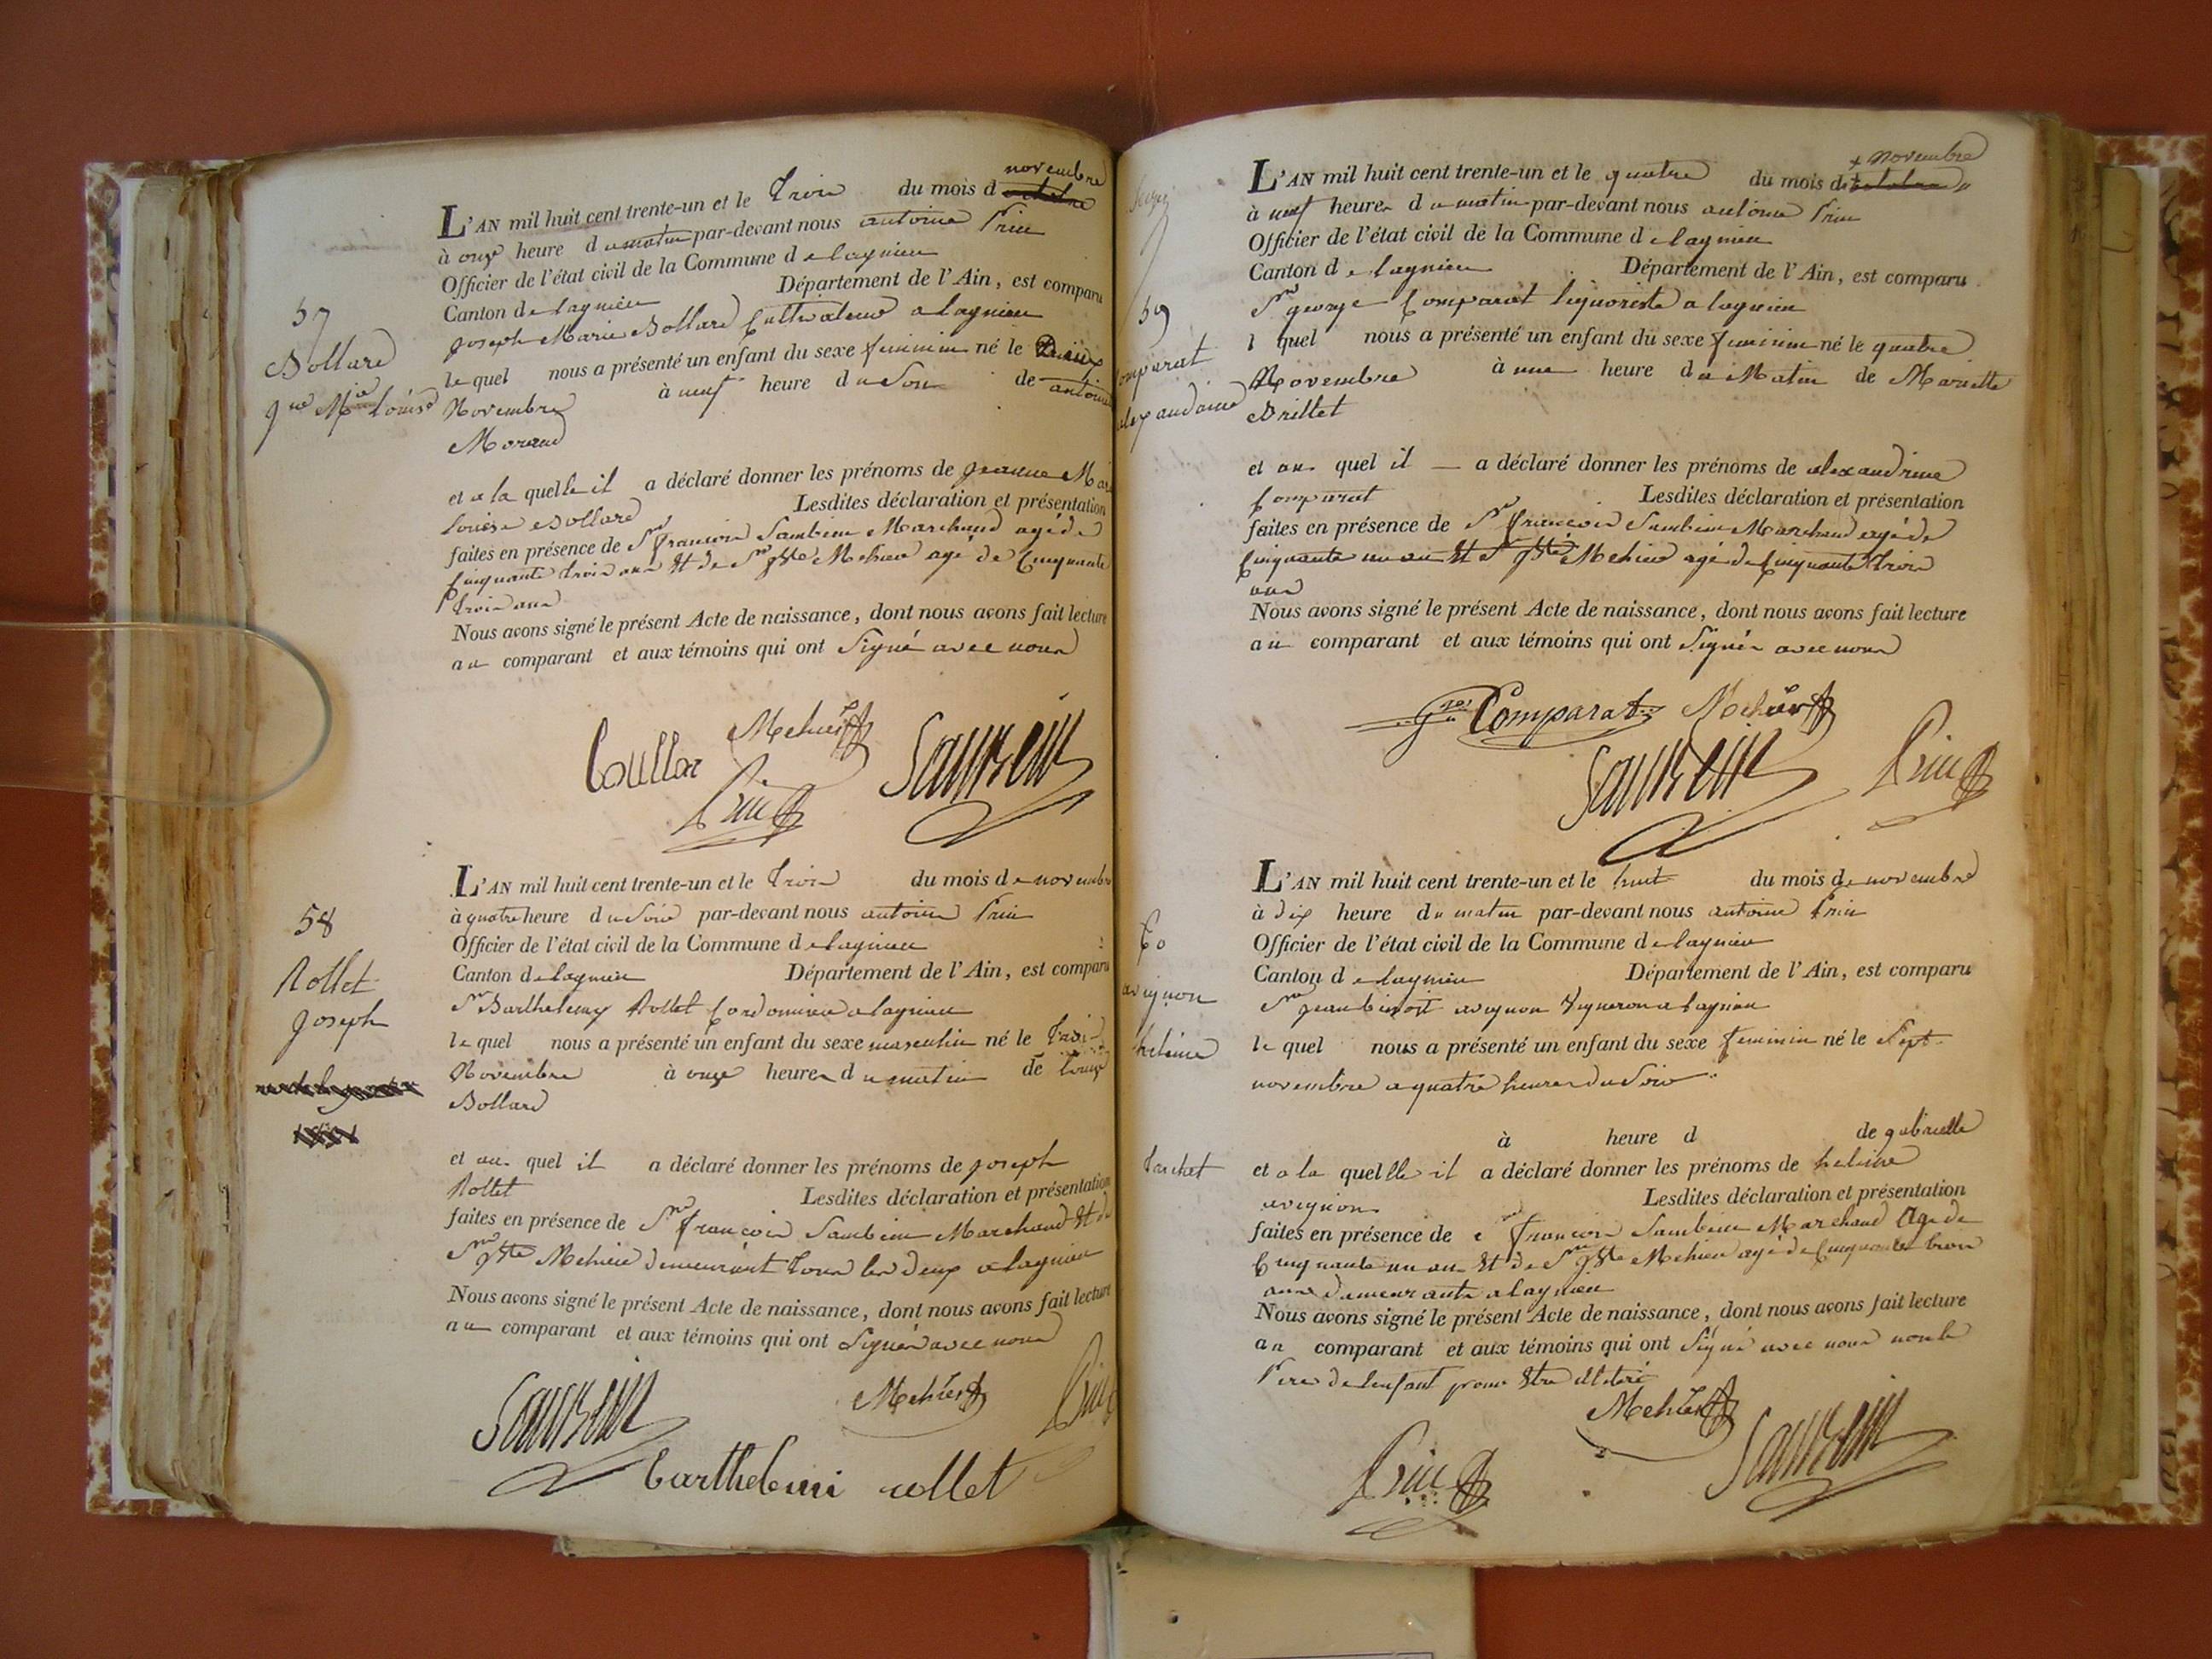 57
Bollard
Jne Mie Louise
novembre
L'AN mil huit cent trente-un et le Trois du mois d octobre
à onze heure du matin par-devant nous antoine Prin
Officier de l'état civil de la Commune de lagnieu
Canton de lagnieu Département de l'Ain, est comparu
joseph Marie Bollard Cultivateur a lagnieu
lequel nous a présenté un enfant du sexe feminin né le Deux
Novembre à neuf heure du Soir de antoine
Morand
et a la quelle il a déclaré donner les prénoms de jeanne Mar
Louise Bollard Lesdites déclaration et présentation
faites en présence de Sr françois Sambein Marchand agé de
Cinquante trois ans Et de Sr jBte Mehier agé de Cinquante
trois ans
Nous avons signé le présent Acte de naissance, dont nous avons fait lecture
au comparant et aux témoins qui ont Signé avec nous
Boullar Mehier
Prin Sambein
58
Rollet
joseph
L'AN mil huit cent trente-un et le trois du mois de novembre
à quatre heure du Soir par-devant nous antoine Prin
Officier de l'état civil de la Commune de lagnieu
Canton de lagnieu Département de l'Ain, est comparu
Sr Barthelemy Rollet Cordonnier a lagnieu
lequel nous a présenté un enfant du sexe masculin né le trois
Novembre à onze heures du matin de Louise
Bollard
et au quel il a déclaré donner les prénoms de joseph
Rollet Lesdites déclaration et présentation
faites en présence de Sr françois Sambein Marchand Et de
Sr jBte Mehier demeurant tous les deux a lagnieu
Nous avons signé le présent Acte de naissance, dont nous avons fait lecture
au comparant et aux témoins qui ont Signés avec nous
Sambein Mehier Prin
barthelemi rollet
59
omparat
alexandrine
novembre
L'AN mil huit cent trente-un et le quatre du mois d
à neuf heures du matin par-devant nous antoine Prin
Officier de l'état civil de la Commune de lagnieu
Canton de lagnieu Département de l'Ain, est comparu
Sr george Comparat liquoriste a lagnieu
l quel nous a présenté un enfant du sexe feminin né le quatre
Novembre à une heure du Matin de Mariette
Brillet
et au quel il a déclaré donner les prénoms de alexandrine
Comparat Lesdites déclaration et présentation
faites en présence de Sr françois Sambein Marchand agé de
Cinquante un an Et Sr jBte Mehier agé de Cinquante trois
ans
Nous avons signé le présent Acte de naissance, dont nous avons fait lecture
au comparant et aux témoins qui ont Signés avec nous
Comparat Mehier
Sambein Prin
60
avignon
heleine
L'AN mil huit cent trente-un et le huit du mois de novembre
à dix heure du matin par-devant nous antoine Prin
Officier de l'état civil de la Commune de lagnieu
Canton de lagnieu Département de l'Ain, est comparu
Sr jean benoit avignon Vigneron a lagnieu
le quel nous a présenté un enfant du sexe feminin né le Sept
novembre a quatre heures du Soir
à heure d de gabrielle
et a la quelle il a déclaré donner les prénoms de heleine
avignon Lesdites déclaration et présentation
faites en présence de françois Sambein Marchand Age de
Cinquante un an Et de Sr jBte Mehier agé de Cinquante trois
ans demeurants a lagnieu
Nous avons signé le présent Acte de naissance, dont nous avons fait lecture
au comparant et aux témoins qui ont Signé avec nous non le
Pere de lenfant pour Etre illiteré
Mehier
Prin Sambein